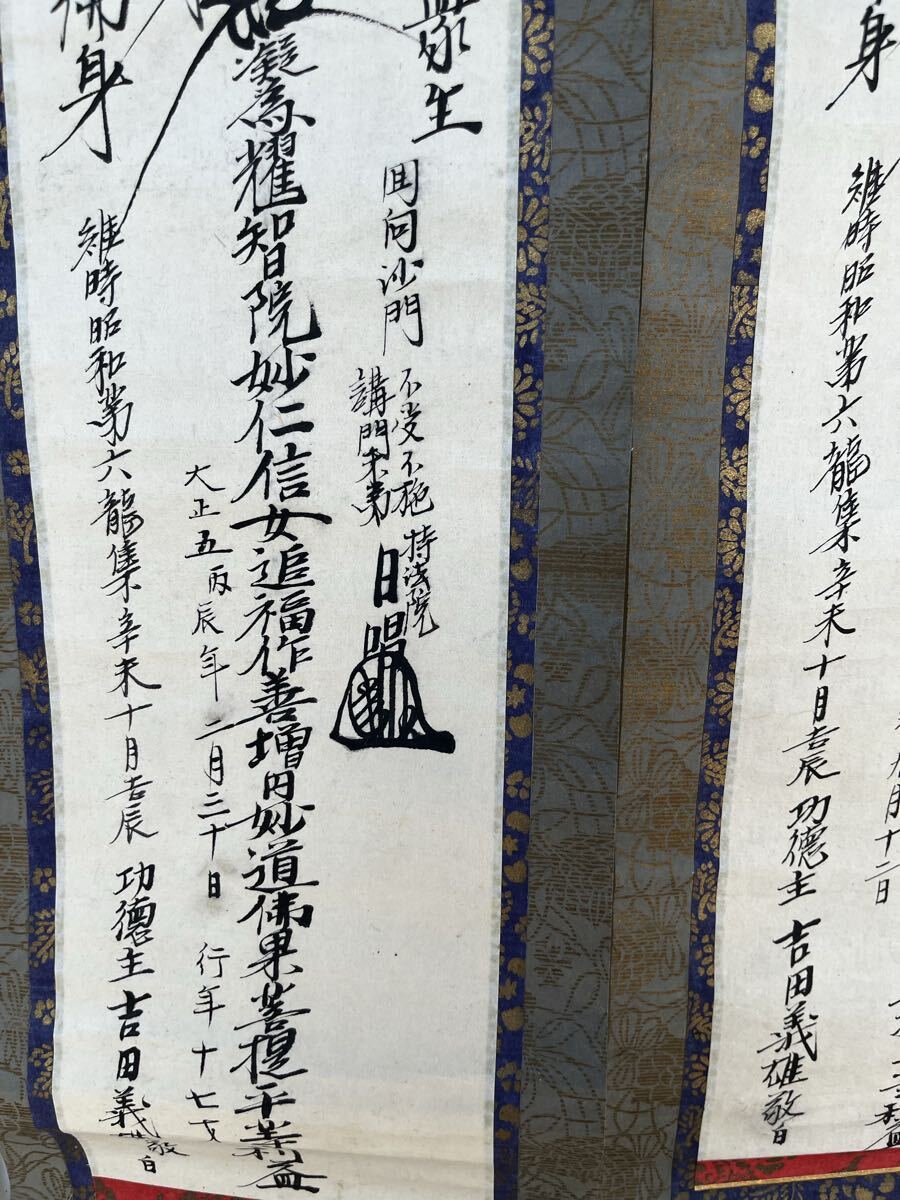 衆生
回向沙門
不受不施
講門末弟
持法院
日
擬為耀智院妙仁信女追福作善増円妙道佛果菩提平等利益
大正五丙辰年二月三十日 行年十七才
佛身
維時昭和第六龍集辛未十月吉辰 功德主 吉田義雄敬白
九月十二日
身
維時昭和第六龍集辛未十月吉辰 功德主 吉田義雄敬白